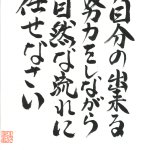 自分の出来る
努力をしながら
自然な流れに
任せなさい